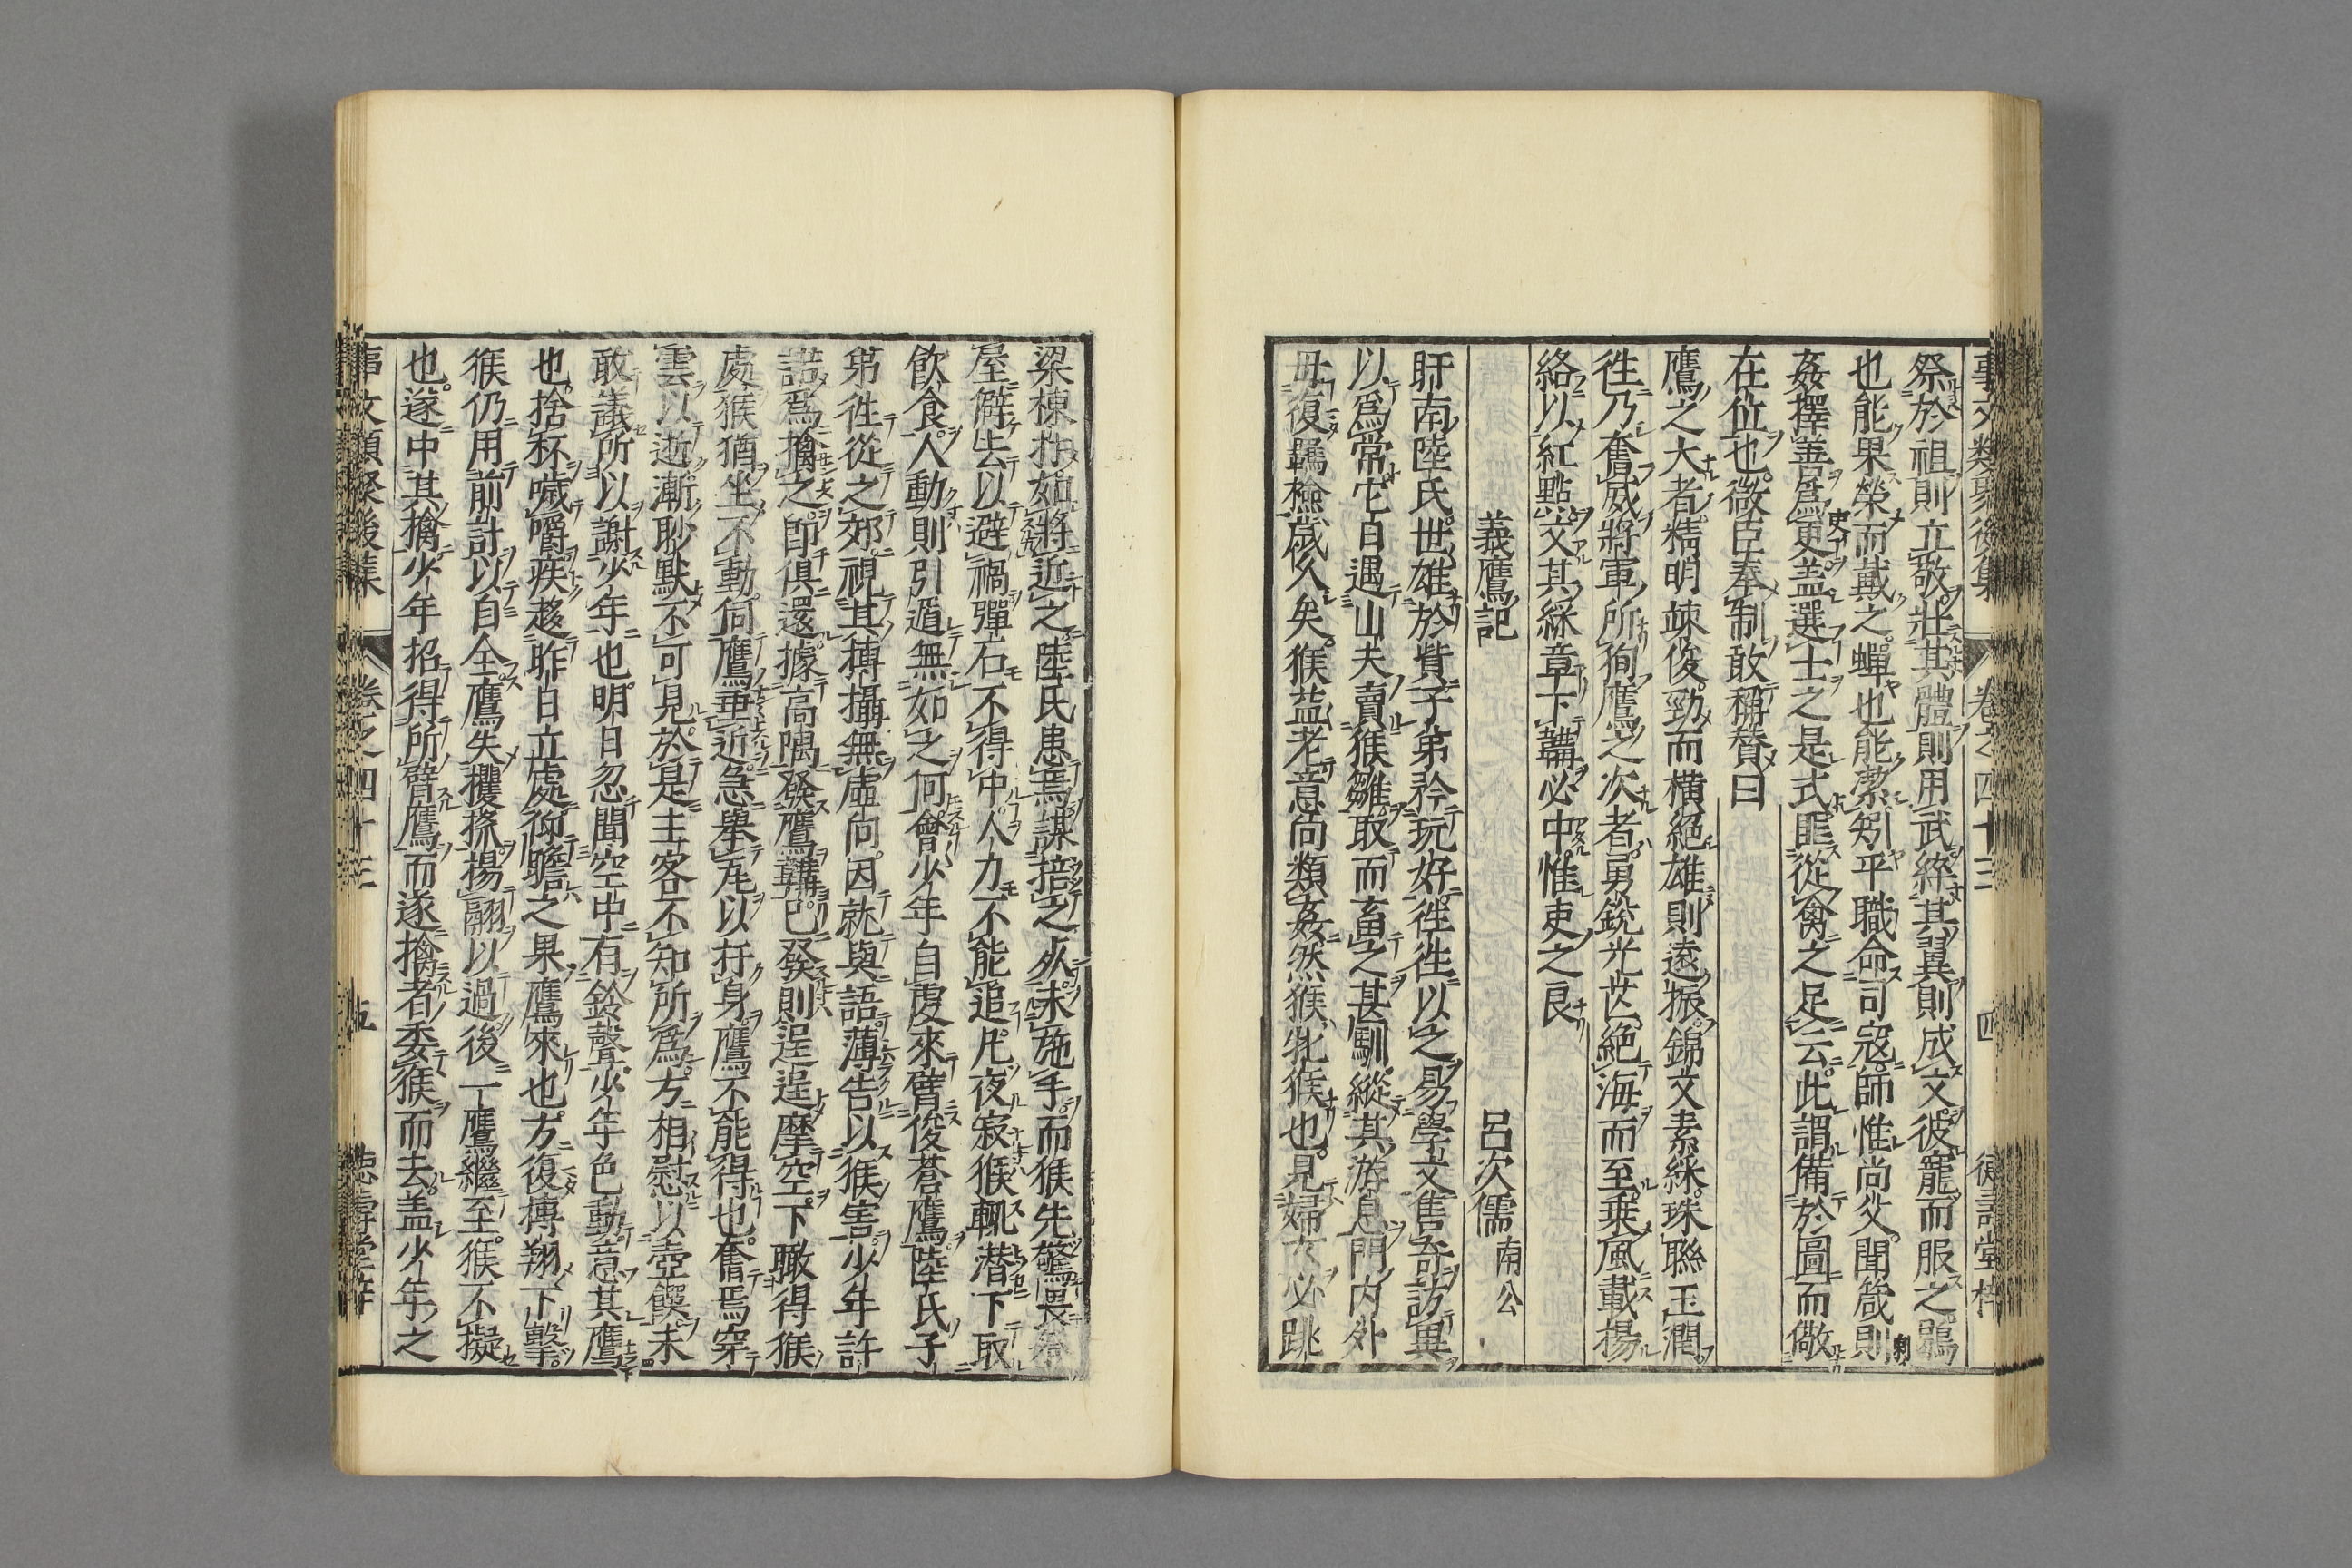 事文類聚後集 卷之四十三 四 德壽堂梓
祭於祖則立敬壯其體則用武綷其翼則成文彼寵而服之鶡
也能果榮而戴之蟬也能潔矧乎職命司寇師惟尚父聞箴則
姦擇善爲吏盖選士之是式匪從禽之足云此謂備於圖而儆
在位也微臣奉制敢稱贊曰
鷹之大者精明竦俊勁而橫絕雄則遠振錦文素綵珠聯玉潤
徃乃奮威將軍所徇鷹之次者勇銳光芒絕海而至乗風載揚
絡以紅點文其綵章下鞲必中惟吏之良
義鷹記 呂次儒南公
盱南陸氏世雄於貲子弟矜玩好徃徃以之易學文售奇訪異
以爲常它日遇山夫賣猴雛取而畜之甚馴縱其游息門内外
毋復羈檢歲久矣猴益老意向類姦然猴牝猴也見婦女必跳
梁棟拃如將近之陸氏患焉謀掊之灰未施手而猴先驚畏
屋僻去以避禍彈石不得中人力不能追凡夜寂猴輒潛下取
飲食人動則引遁無如之何會少年自虔來臂俊蒼鷹陸氏子
弟徃從之郊視其搏攝無虛向因就與語薄告以猴害少年許
諾爲擒之即俱還據高隅發鷹鞲已發則逞逞摩空下瞰得猴
處猴猶坐不動伺鷹垂近急舉尾以扞身鷹不能得也奮焉穿
雲以逝漸眇默不可見於是主客不知所爲方相慰以壺饌未
敢議所以謝少年也明日忽聞空中有鈴聲少年色動意其鷹
也捨杯噦嚼疾趍昨日立處仰瞻之果鷹來也方復搏翔下擊
猴仍用前計以自全鷹失攫掀揚翮以過後一鷹繼至猴不擬
也遂中其擒少年招得所臂鷹而遂擒者委猴而去盖少年之
事文類聚後集 卷之四十三 五 德壽堂梓